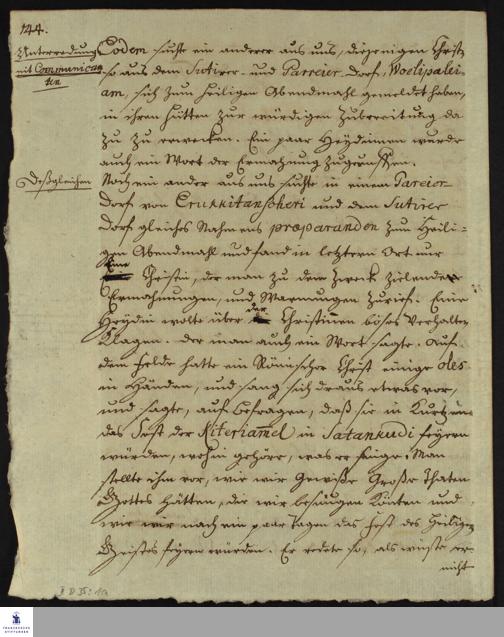 144.
Unterredung
mit Communican-
ten
Eodem suchte ein anderer aus uns, diejenigen Christen
so aus dem Sutirer- und Parreier-Dorf, Woelipalei-
am, sich zum heiligen Abendmahl gemeldet haben,
in ihren Hütten zur würdigen Zubereitung da
zu zu erwecken. Ein paar Heydinnen wurde
auch ein Wort der Ermahnung zugeruffen.
Deßgleichen
Noch ein ander aus uns suchte in einem Pareier-
Dorf von Erukkitanscheri und dem Sutirer
Dorf gleiches Nahmens præparanden zum Heili-
gen Abendmahl und fand in letztern Ort nur
Eine Christin, der man zu dem Zweck zielende
Ermahnungen, und Warnungen zurief. Eine
Heydin wolte über der Christinnen böses Verhalten
klagen. der man auch ein Wort sagte. Auf
dem Felde hatte ein Römischer Christ einige oles
in Händen, und sang sich draus etwas vor,
und sagte, auf Befragen, daß sie in Kurtzem
das Fest der Kiteriammel in Satankudi feyren
würden, wohin gehöre, was er singe. Man
stellte ihm vor, wie wir gewisse Große Thaten
Gottes hätten, die wir besingen könten und
wie wir nach ein paar Tagen das Fest des Heiligen
Geistes feyren würden. Er redete so, als wüste er
nicht
FRANCKESCHE
STIFTUNGEN